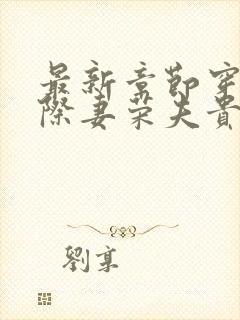 最新章節穿
際妻荣夫貴
劉享